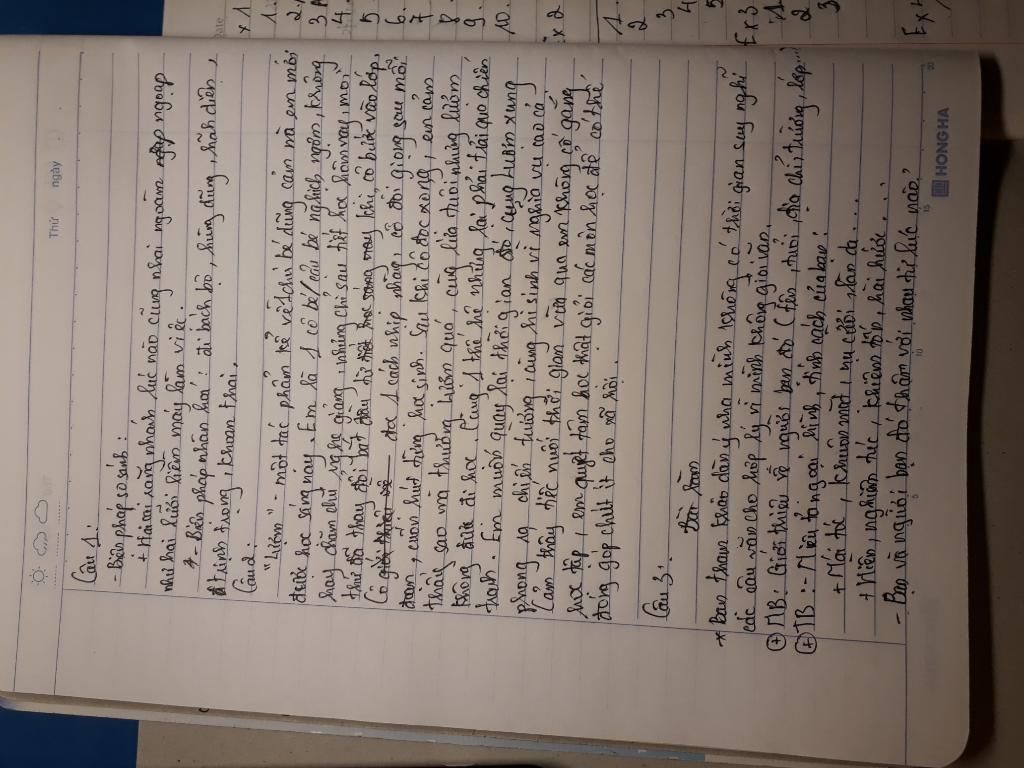 Thứ ngày
Câu 1:
- Biện pháp so sánh:
+ Hai cái răng nhanh lúc nào cũng nhai ngoàm ngoạp
như hai lưỡi liềm máy làm việc.
+ Biện pháp nhân hoá: đi bách bộ, hùng dũng, hãnh diện,
trịnh trọng, khoan thai.
Câu 2:
"Lượm" - một tác phẩm kể về chú bé dũng cảm mà em mới
được học sáng nay. Em là 1 cô bé/cậu bé nghịch ngợm, không
hay chăm chú nghe giảng, nhưng chỉ sau tiết học hôm nay, mọi
thứ đã thay đổi bắt đầu từ khi cô bước vào lớp.
Cô đọc 1 cách nhịp nhàng, rồ đổi giọng sau mỗi
đoạn, cuốn hút từng học sinh. Sau khi cô đọc xong, em cảm
thấy sao mà thương Lượm quá, cùng lứa tuổi nhưng Lượm
không được đi học, cùng 1 thế hệ nhưng lại phải trải qua chiến
tranh. Em muốn quay lại thời gian đó, cùng Lượm xung
phong ra chiến trường, cùng hi sinh vì nghĩa vụ cao cả.
Cảm thấy tiếc nuối thời gian vừa qua em không cố gắng
học tập, em quyết tâm học thật giỏi các môn học để có thể
đóng góp chút ít cho xã hội.
Câu 3: Bài làm
* Bạn tham khảo dàn ý nha mình không có thời gian suy nghĩ
các câu văn cho hợp lý vì mình không giỏi văn.
+ MB: Giới thiệu về người bạn đó (tên, tuổi, địa chỉ, trường, lớp...)
+ TB: - Miêu tả ngoại hình, tính cách của bạn:
+ Mái tóc, khuôn mặt, nụ cười, làn da...
+ Hiền, nghiêm túc, khiêm tốn, hài hước...
- Bạn và người bạn đó thân với nhau từ lúc nào,
5 10 15 20
HONG HA
Ex 1
1.
2.
3.
4.
5.
6.
7.
8.
9.
10.
Ex 2
1.
2
3.
4
5
Ex 3
1.
2
3
Ex 4